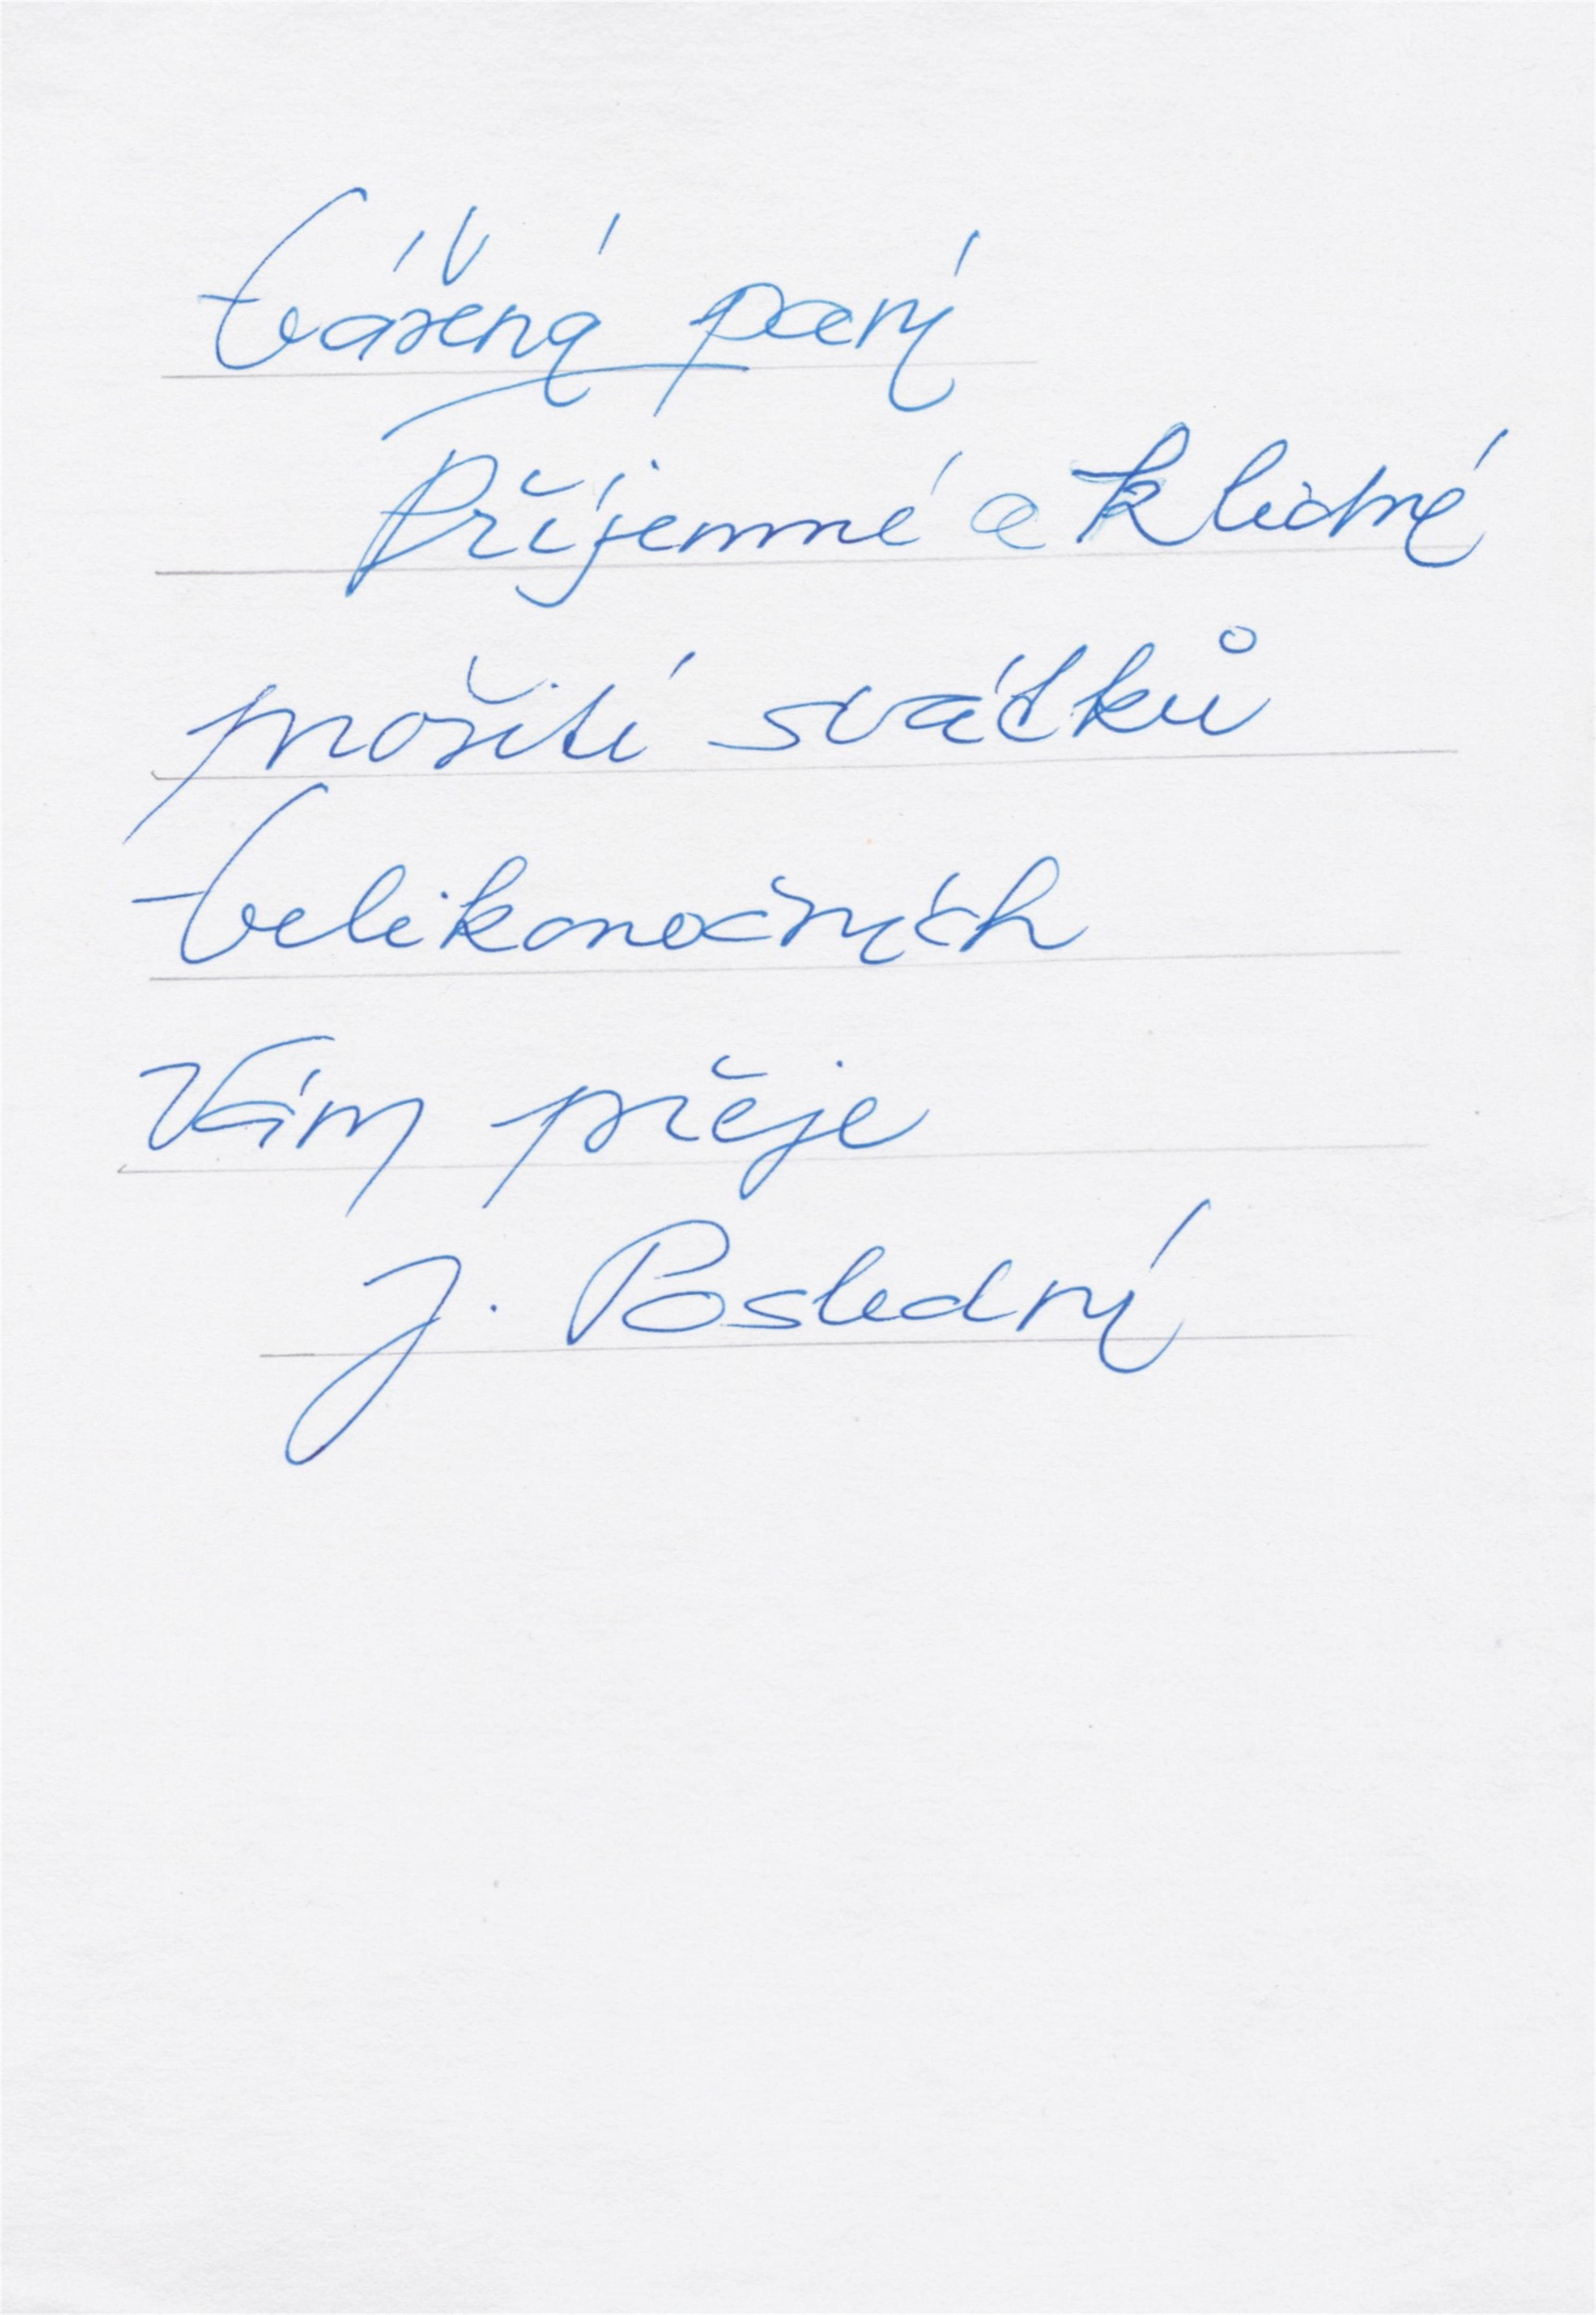 Vážená paní
Příjemné a klidné
prožití svátků
Velikonočních
Vám přeje
J. Poslední